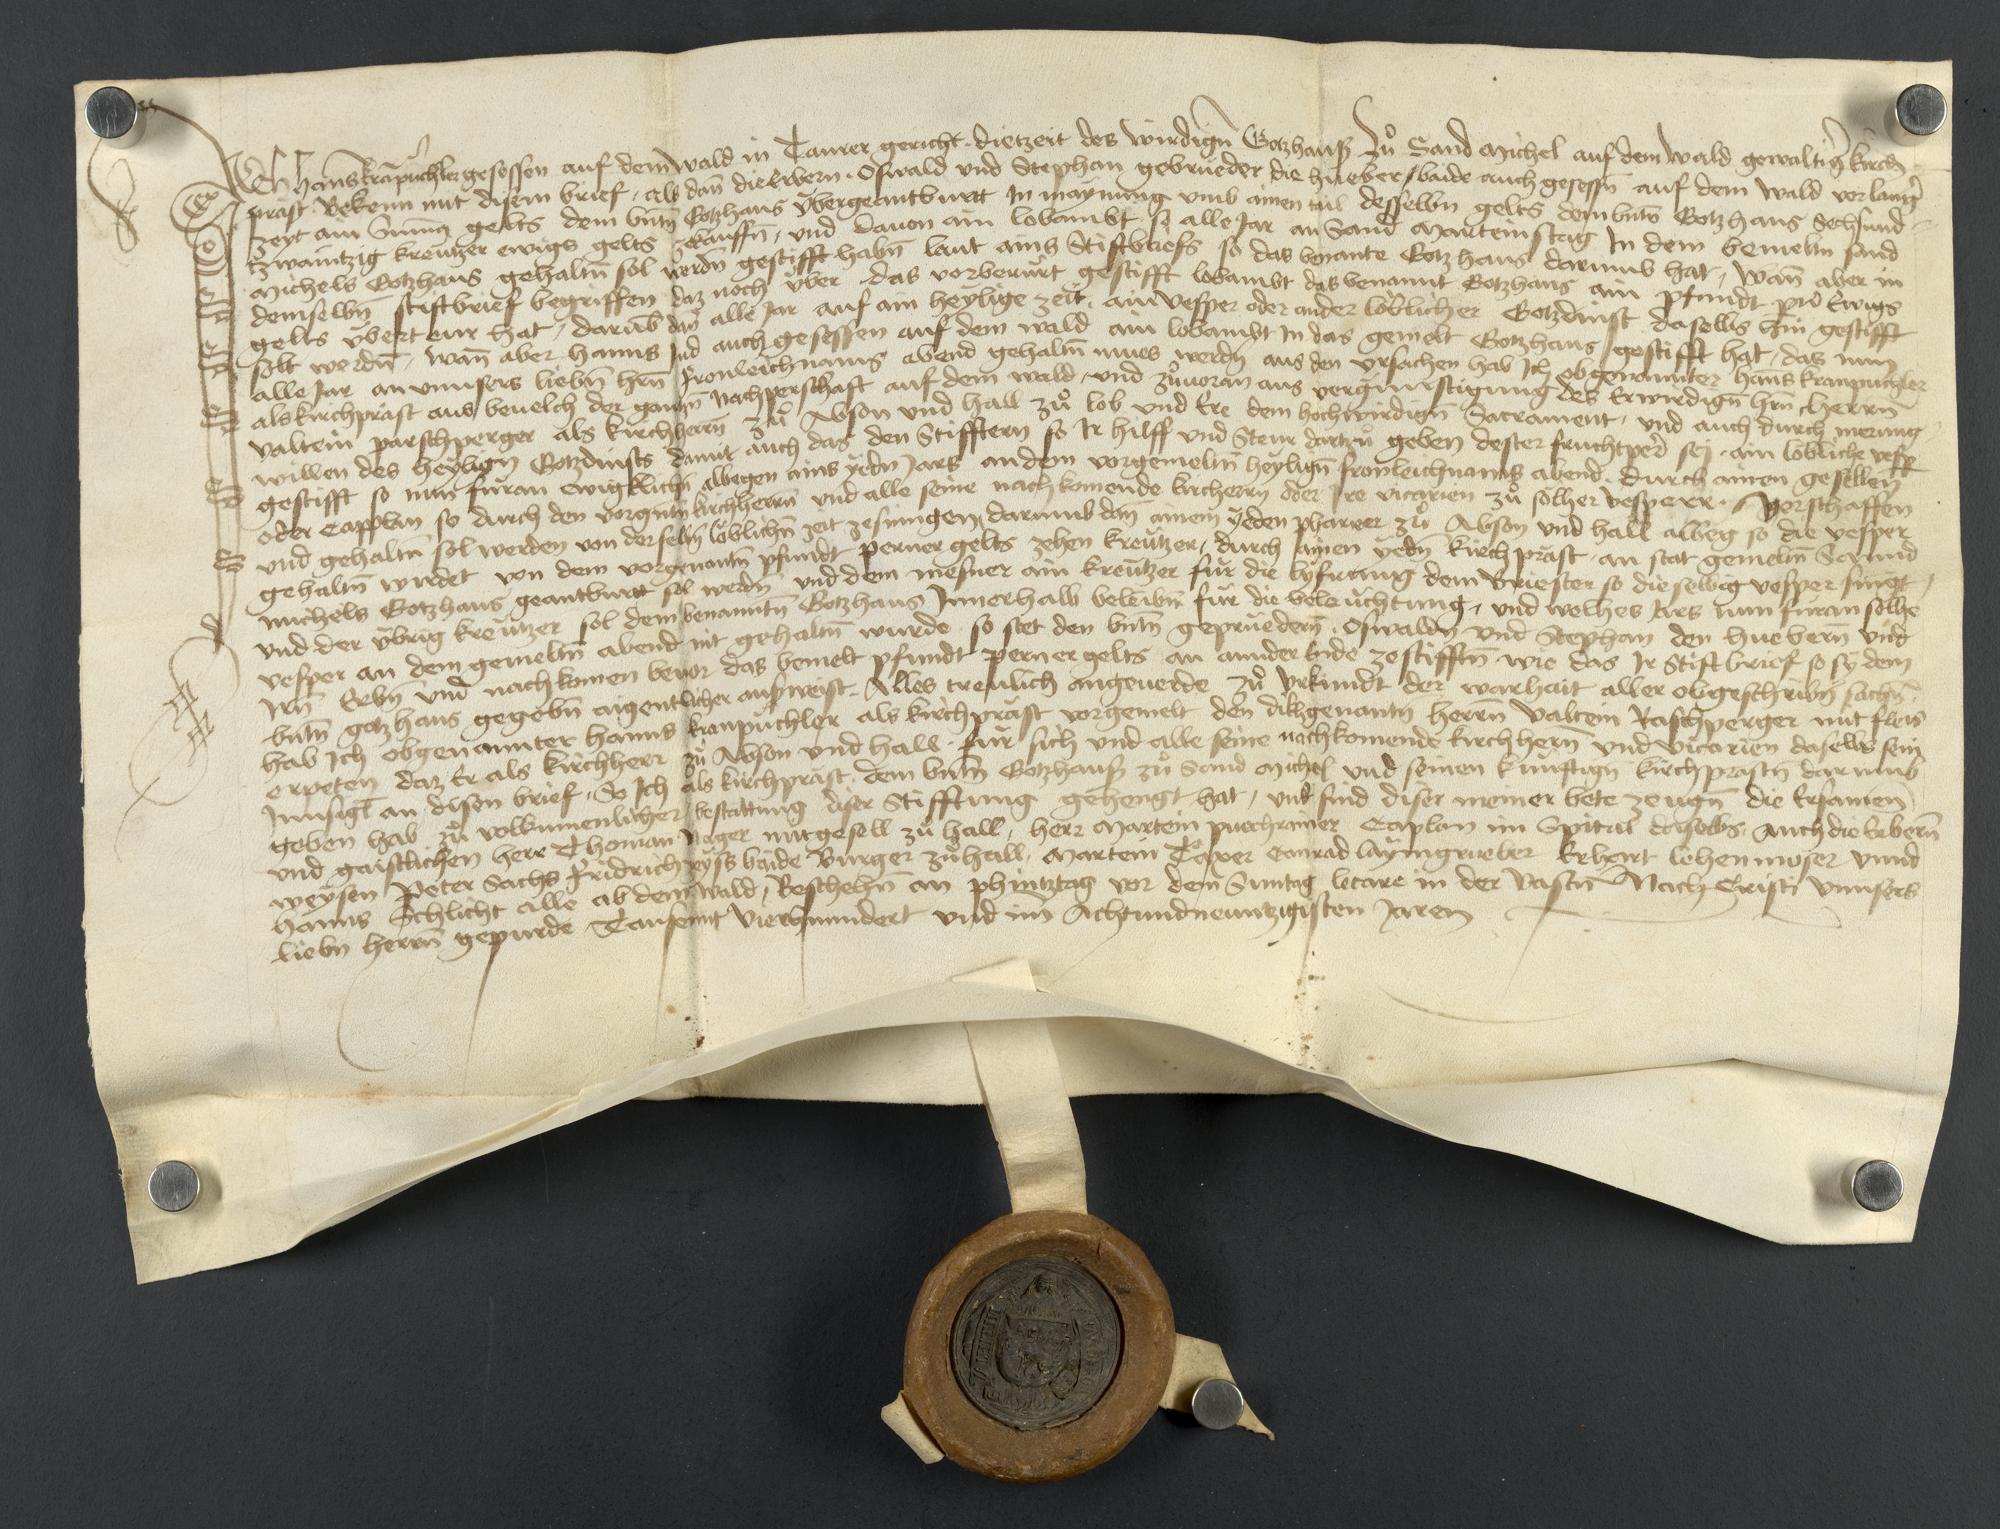 Ich Hanns kranpüchler gesessen auf dem Wald in Taurer gericht dietzeit des wirdign Gotzhauss zů Sand Michel auf dem wald gewaltiger kirch
präst Bekenn mit disem brief, als dan die Erbern Oswald und Stephan gebrüeder die hueber baide auch gesessn auf dem wald vor langer
zeyt ain Summ gelts dem bntn Gotzhaus ÿbergeantburtt In maynung umb ainen tail desselbn gelts dem bntn Gotzhaus Sechsund
tzwaintzig kreutzer ewigs gelts zekauffn, und davon ain lobambt so alle Jar an Sand Marteinstag In dem bemeltn sand
Michels Gotzhaus gehaltn sol werdn gestifft habn laut ains Stiftbriefs so das benante Gotzhaus darumb hat, Wan aber in
demselbn stiftbrief begriffen daz noch über das vorberürt gestifft lobambt das benannt Gotzhaus ain pfundt perner Ewigs
gelts ÿberteur hat, darub das alle Jar auf ain heylige zeit ain vesper oder ander löblicher Gotzdinst daselbs hin gestifft
solt werdn, wan aber hanns Jud auch gesessen auf dem wald ain lobambt In das gemelt Gotzhaus gestifft hat, das nun
alle Jar an unnsers liebn hrn fronleichnams abend gehaltn mues werdn aus den ursachen hab Ich obgenannter hanns kranpuchler
als kirchpräst aus bevelch der gantzn nachperschaft auf dem wald, und zůvoran aus vergunstigung des Erwirdign hrn herrn
valtein parschperger als kirchherrn zů Abson und hall zů lob und Ere dem hochwirdign Sacrament, und auch durch merung
willen des heylign Gotzdinsts damit auch das den Stifftern so Ir hilff und Steur dartzů geben dester fruchtper sej ain löbliche vesp
gestifft so nun füran ewigklichn albegen ains yedn Jars an dem vorgemeltn heylign fronleichnams abend durch ainen gesellen
oder Capplan so durch den vorgntn kirchherrn und alle seine nachkomende kircherrn oder Ire vicarien zů solher vesperr verschaffen
und gehaltn sol werden von derselbn löblichn zeit zesingen, darumb dan ainem yeden pharrer zů Abson und hall albeg so die vesper
gehaltn wirdet von dem vorgenantn pfundt perner gelts zehen kreutzer, durch ainen yedn kirchpräst an stat gemeltn Sannd
michels Gotzhaus geantburtt sol werdn und dem mesner ain kreutzer für die lyfrung dem Briester so dieselbig vesper singt,
und der ÿbrig kreutzer sol dem benanntn Gotzhaus Innerhalb beleibn für die beleuchtung, und welhes Jars nun füran solhe
vesper an dem gemeltn abend nit gehaltn wurde so stet den bntn geprüedern Oswaldn und Stephan den huebern und
Irn Erbn und nachkomen bevor das bemelt pfundt perner gelts an annder Ende zestifftn wie das Ir Stiftbrief so sÿ dem
bntn gotzhaus gegebn aigentlicher aufweist. Alles treulich angeuerde zů urkundt der warhait aller obgeschribn sachn
hab Ich obgenannter hanns kranpüchler als kirchpräst vorgemelt den dikhgenantn herrn valtein Parschperger mit fleis
erpeten daz Er als kirchherr zů Abson und hall für sich und alle seine nachkomende kirchhern und vicarien daselbs sein
Innsigl an disen brief, So Ich als kirchpräst dem bntn Gotzhauss zů Sand Michel und seinen künftign kirchpräst darumb
geben hab zů volkumenlicher bestättung diser Stifftung gehengt hat, und sind diser meiner bete zeugn die Ersamen
und gaistlichen herr Thoman Nager mitgesell zů hall, herr Martein puechrainer Caplan im Spital daselbs Auch die Erbern
weysen Peter Sachs fridrich ryss baide Burger zů hall, Martein Taxer Conrad laymgrueber Erhart lehenmoser unnd
hanns Schlicht alle ab dem wald, Beschehn an phintztag vor dem Suntag letare in der Vastn Nach Cristi unnsers
liebn herrn gepurde Tausennt Vierhunndert und im Achtundneuntzigisten Jaren